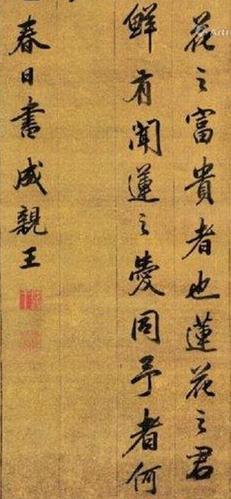 花之富貴者也蓮花之君
鮮有聞蓮之愛同予者何
春日書成親王